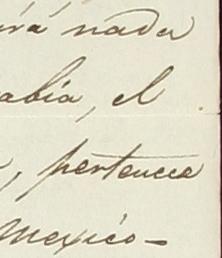 ará nada
abía, el
, pertenece
Mexico-